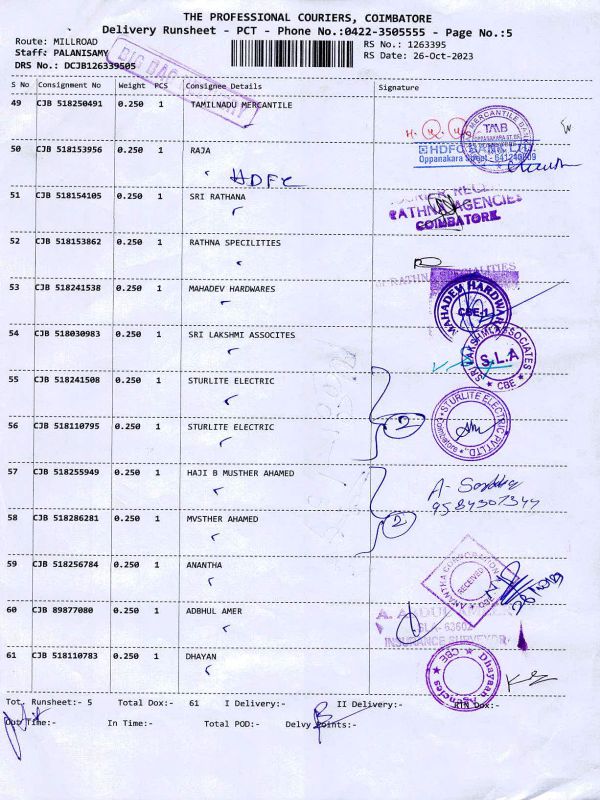 THE PROFESSIONAL COURIERS, COIMBATORE
Delivery Runsheet - PCT - Phone No.:0422-3505555 - Page No.:5
Route: MILLROAD RS No.: 1263395
Staff: PALANISAMY RS Date: 26-Oct-2023
DRS No.: DCJB126339505
S No Consignment No Weight PCS Consignee Details Signature
49 CJB 518250491 0.250 1 TAMILNADU MERCANTILE
TMB
50 CJB 518153956 0.250 1 RAJA
HDFC BANK LTD
Oppanakara Street
HDFC
51 CJB 518154105 0.250 1 SRI RATHANA
RATHNA AGENCIES
COIMBATORE
52 CJB 518153862 0.250 1 RATHNA SPECILITIES
53 CJB 518241538 0.250 1 MAHADEV HARDWARES
MAHADEV HARDWARE
CBE-1
54 CJB 518030983 0.250 1 SRI LAKSHMI ASSOCITES
SRI LAKSHMI ASSOCIATES
S.L.A
CBE
55 CJB 518241508 0.250 1 STURLITE ELECTRIC
STURLITE ELECTRIC PVT LTD.
2
56 CJB 518110795 0.250 1 STURLITE ELECTRIC
57 CJB 518255949 0.250 1 HAJI B MUSTHER AHAMED
9584307344
58 CJB 518286281 0.250 1 MVSTHER AHAMED
2
59 CJB 518256784 0.250 1 ANANTHA
ANANTHA CORPORATION
RECEIVED
CBE
60 CJB 89877080 0.250 1 ADBHUL AMER
INSURANCE SURVEYOR
61 CJB 518110783 0.250 1 DHAYAN
Dhayaan Agencies
CBE
Tot. Runsheet:- 5 Total Dox:- 61 I Delivery:- II Delivery:- RTN Dox:-
Out Time:- In Time:- Total POD:- Delvy Points:-